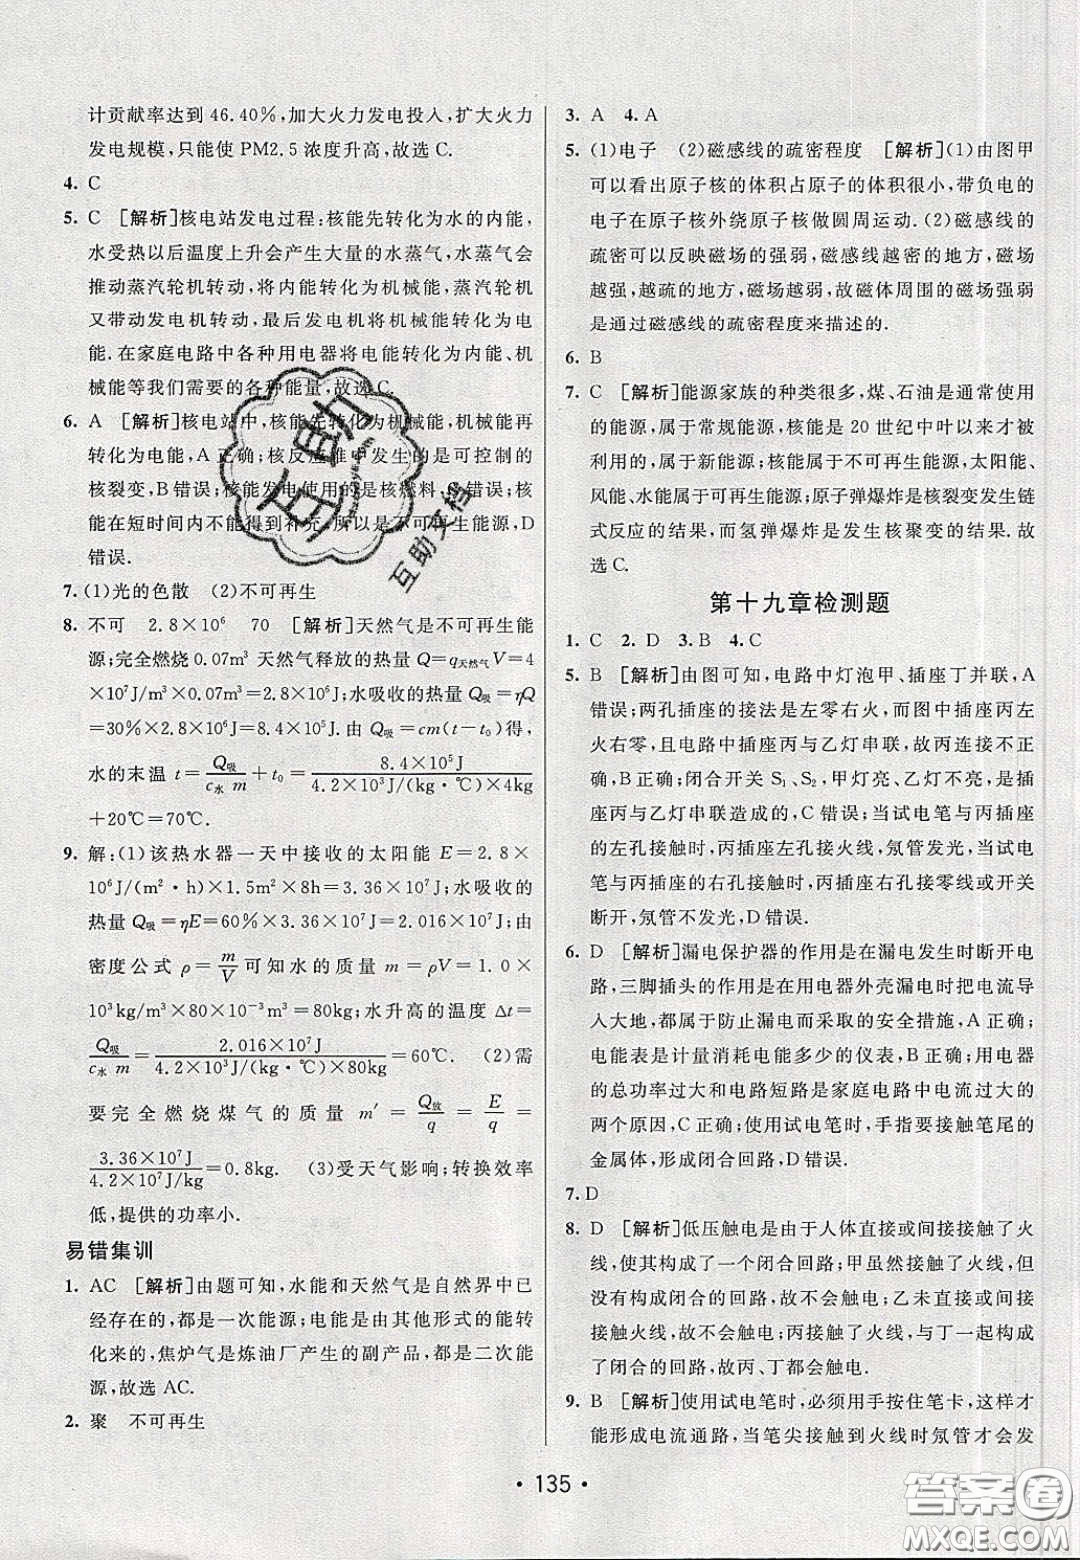 计贡献率达到 46.40%,加大火力发电投入,扩大火力
发电规模,只能使 PM2.5 浓度升高,故选 C.
4. C
5. C [解析]核电站发电过程:核能先转化为水的内能,
水受热以后温度上升会产生大量的水蒸气,水蒸气会
推动蒸汽轮机转动,将内能转化为机械能,蒸汽轮机
又带动发电机转动,最后发电机将机械能转化为电
能.在家庭电路中各种用电器将电能转化为内能、机
械能等我们需要的各种能量,故选 C.
6. A [解析]核电站中,核能先转化为机械能,机械能再
转化为电能,A 正确;核反应堆中发生的是可控制的
核裂变,B 错误;核能发电使用的是核燃料,C 错误;核
能在短时间内不能得到补充,所以是不可再生能源,D
错误.
7. (1)光的色散 (2)不可再生
8. 不可 2.8×10⁶ 70 [解析]天然气是不可再生能
源;完全燃烧 0.07m³ 天然气释放的热量 Q=q天然气V=4
×10⁷J/m³×0.07m³=2.8×10⁶J;水吸收的热量 Q吸=ηQ
=30%×2.8×10⁶J=8.4×10⁵J.由 Q吸=cm(t-t₀)得,
水的末温 t=Q吸/(c水 m)+t₀=8.4×10⁵J/(4.2×10³J/(kg·℃)×4kg)
+20℃=70℃.
9. 解:(1)该热水器一天中接收的太阳能 E=2.8×
10⁶J/(m²·h)×1.5m²×8h=3.36×10⁷J;水吸收的
热量 Q吸=ηE=60%×3.36×10⁷J=2.016×10⁷J;由
密度公式 ρ=m/V 可知水的质量 m=ρV=1.0×
10³kg/m³×80×10⁻³m³=80kg;水升高的温度 Δt=
Q吸/(c水 m)=2.016×10⁷J/(4.2×10³J/(kg·℃)×80kg)=60℃. (2)需
要完全燃烧煤气的质量 m′=Q放/q=E/q=
3.36×10⁷J/(4.2×10⁷J/kg)=0.8kg. (3)受天气影响;转换效率
低,提供的功率小.
易错集训
1. AC [解析]由题可知,水能和天然气是自然界中已
经存在的,都是一次能源;电能是由其他形式的能转
化来的,焦炉气是炼油厂产生的副产品,都是二次能
源,故选 AC.
2. 聚 不可再生
3. A 4. A
5. (1)电子 (2)磁感线的疏密程度 [解析](1)由图甲
可以看出原子核的体积占原子的体积很小,带负电的
电子在原子核外绕原子核做圆周运动.(2)磁感线的
疏密可以反映磁场的强弱,磁感线越密的地方,磁场
越强,越疏的地方,磁场越弱,故磁体周围的磁场强弱
是通过磁感线的疏密程度来描述的.
6. B
7. C [解析]能源家族的种类很多,煤、石油是通常使用
的能源,属于常规能源,核能是 20 世纪中叶以来才被
利用的,属于新能源;核能属于不可再生能源,太阳能、
风能、水能属于可再生能源;原子弹爆炸是核裂变发生链
式反应的结果,而氢弹爆炸是发生核聚变的结果.故
选 C.
第十九章检测题
1. C 2. D 3. B 4. C
5. B [解析]由图可知,电路中灯泡甲、插座丁并联,A
错误;两孔插座的接法是左零右火,而图中插座丙左
火右零,且电路中插座丙与乙灯串联,故丙连接不正
确,B 正确;闭合开关 S₁、S₂,甲灯亮、乙灯不亮,是插
座丙与乙灯串联造成的,C 错误;当试电笔与丙插座
的左孔接触时,丙插座左孔接火线,氖管发光,当试电
笔与丙插座的右孔接触时,丙插座右孔接零线或开关
断开,氖管不发光,D 错误.
6. D [解析]漏电保护器的作用是在漏电发生时断开电
路,三脚插头的作用是在用电器外壳漏电时把电流导
入大地,都属于防止漏电而采取的安全措施,A 正确;
电能表是计量消耗电能多少的仪表,B 正确;用电器
的总功率过大和电路短路是家庭电路中电流过大的
两个原因,C 正确;使用试电笔时,手指要接触笔尾的
金属体,形成闭合回路,D 错误.
7. D
8. D [解析]低压触电是由于人体直接或间接接触了火
线,使其构成了一个闭合回路;甲虽然接触了火线,但
没有构成闭合的回路,故不会触电;乙未直接或间接
接触火线,故不会触电;丙接触了火线,与丁一起构成
了闭合的回路,故丙、丁都会触电.
9. B [解析]使用试电笔时,必须用手按住笔卡,这样才
能形成电流通路,当笔尖接触到火线时氖管才会发
• 135 •
互助
互助文档
答案圈
MXQE.COM